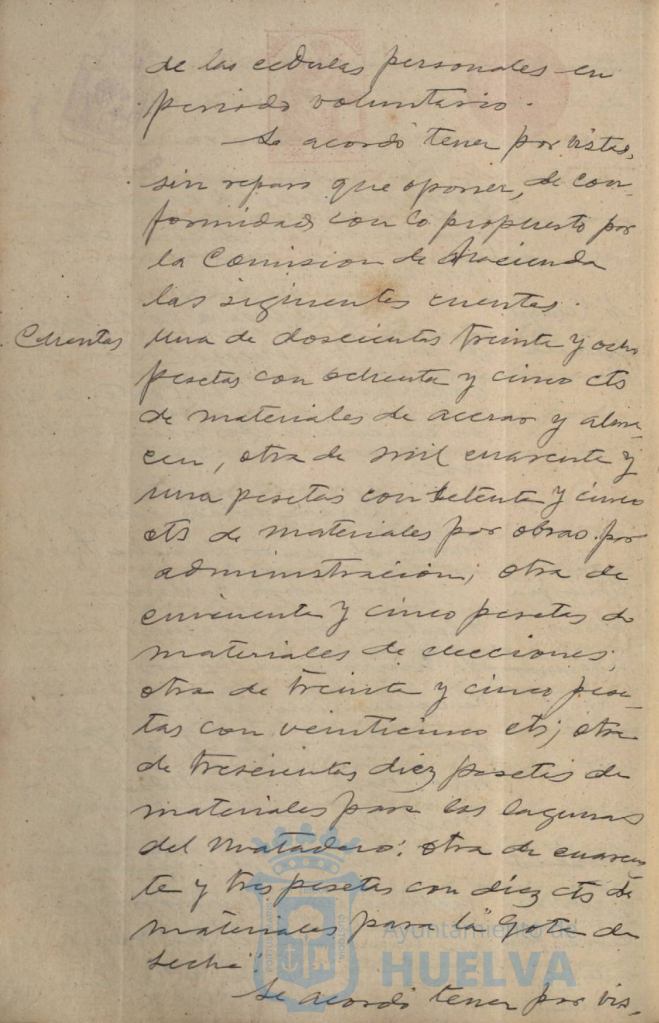 de las cedulas personales en
periodo voluntario.
Se acordó tener por vistas,
sin reparo que oponer, de con-
formidad con lo propuesto por
la Comision de Hacienda
las siguientes cuentas.
Cuentas
Una de doscientas treinta y ocho
pesetas con ochenta y cinco cts
de materiales de aceras y alma-
cen, otra de mil cuarenta y
una pesetas con setenta y cinco
cts de materiales por obras por
administración; otra de
cincuenta y cinco pesetas de
materiales de elecciones;
otra de treinta y cinco pese-
tas con veinticinco cts; otra
de trescientas diez pesetas de
materiales para las lagunas
del Matadero; otra de cuaren-
ta y tres pesetas con diez cts de
materiales para la "Gota de
Leche".
Se acordó tener por vis-
Ayuntamiento de
HUELVA